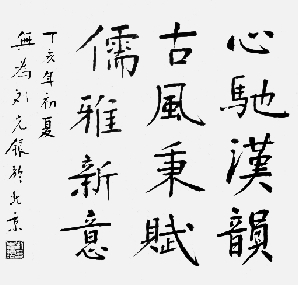 心馳漢韻
古風秉賦
儒雅新意
丁亥年初夏
無為刘克銀於北京